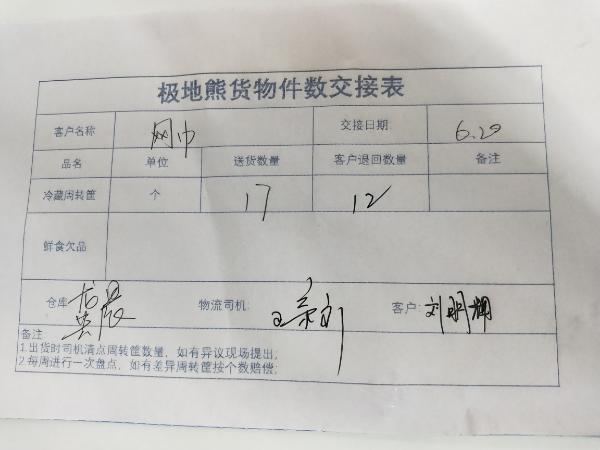 极地熊货物件数交接表
客户名称 网巾 交接日期: 6.20
品名 单位 送货数量 客户退回数量 备注
冷藏周转筐 个 17 12
鲜食欠品
仓库: 物流司机: 客户: 刘明
备注:
1.出货时司机清点周转筐数量,如有异议现场提出;
2.每周进行一次盘点,如有差异周转筐按个数赔偿;